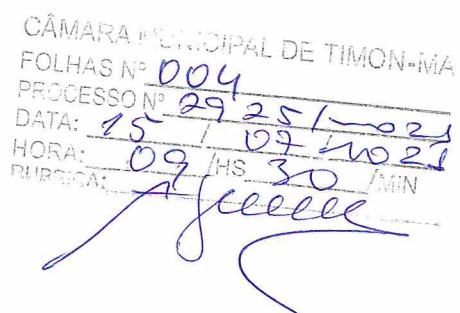 CÂMARA MUNICIPAL DE TIMON-MA
FOLHAS Nº 004
PROCESSO Nº 2925/2021
DATA: 15 / 07 / 2021
HORA: 09 /HS 30 /MIN
RUBRICA: